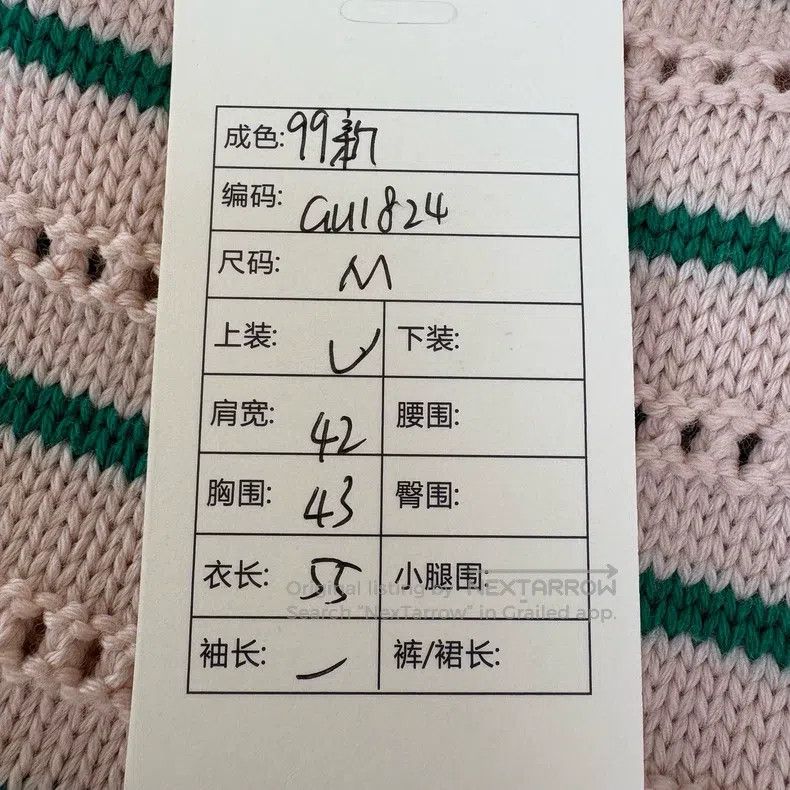 成色: 99新
编码: GU1824
尺码: M
上装: ✓ 下装:
肩宽: 42 腰围:
胸围: 43 臀围:
衣长: 55 小腿围:
Original listing by NEXTARROW
Search "NexTarrow" in Grailed app.
袖长: — 裤/裙长: